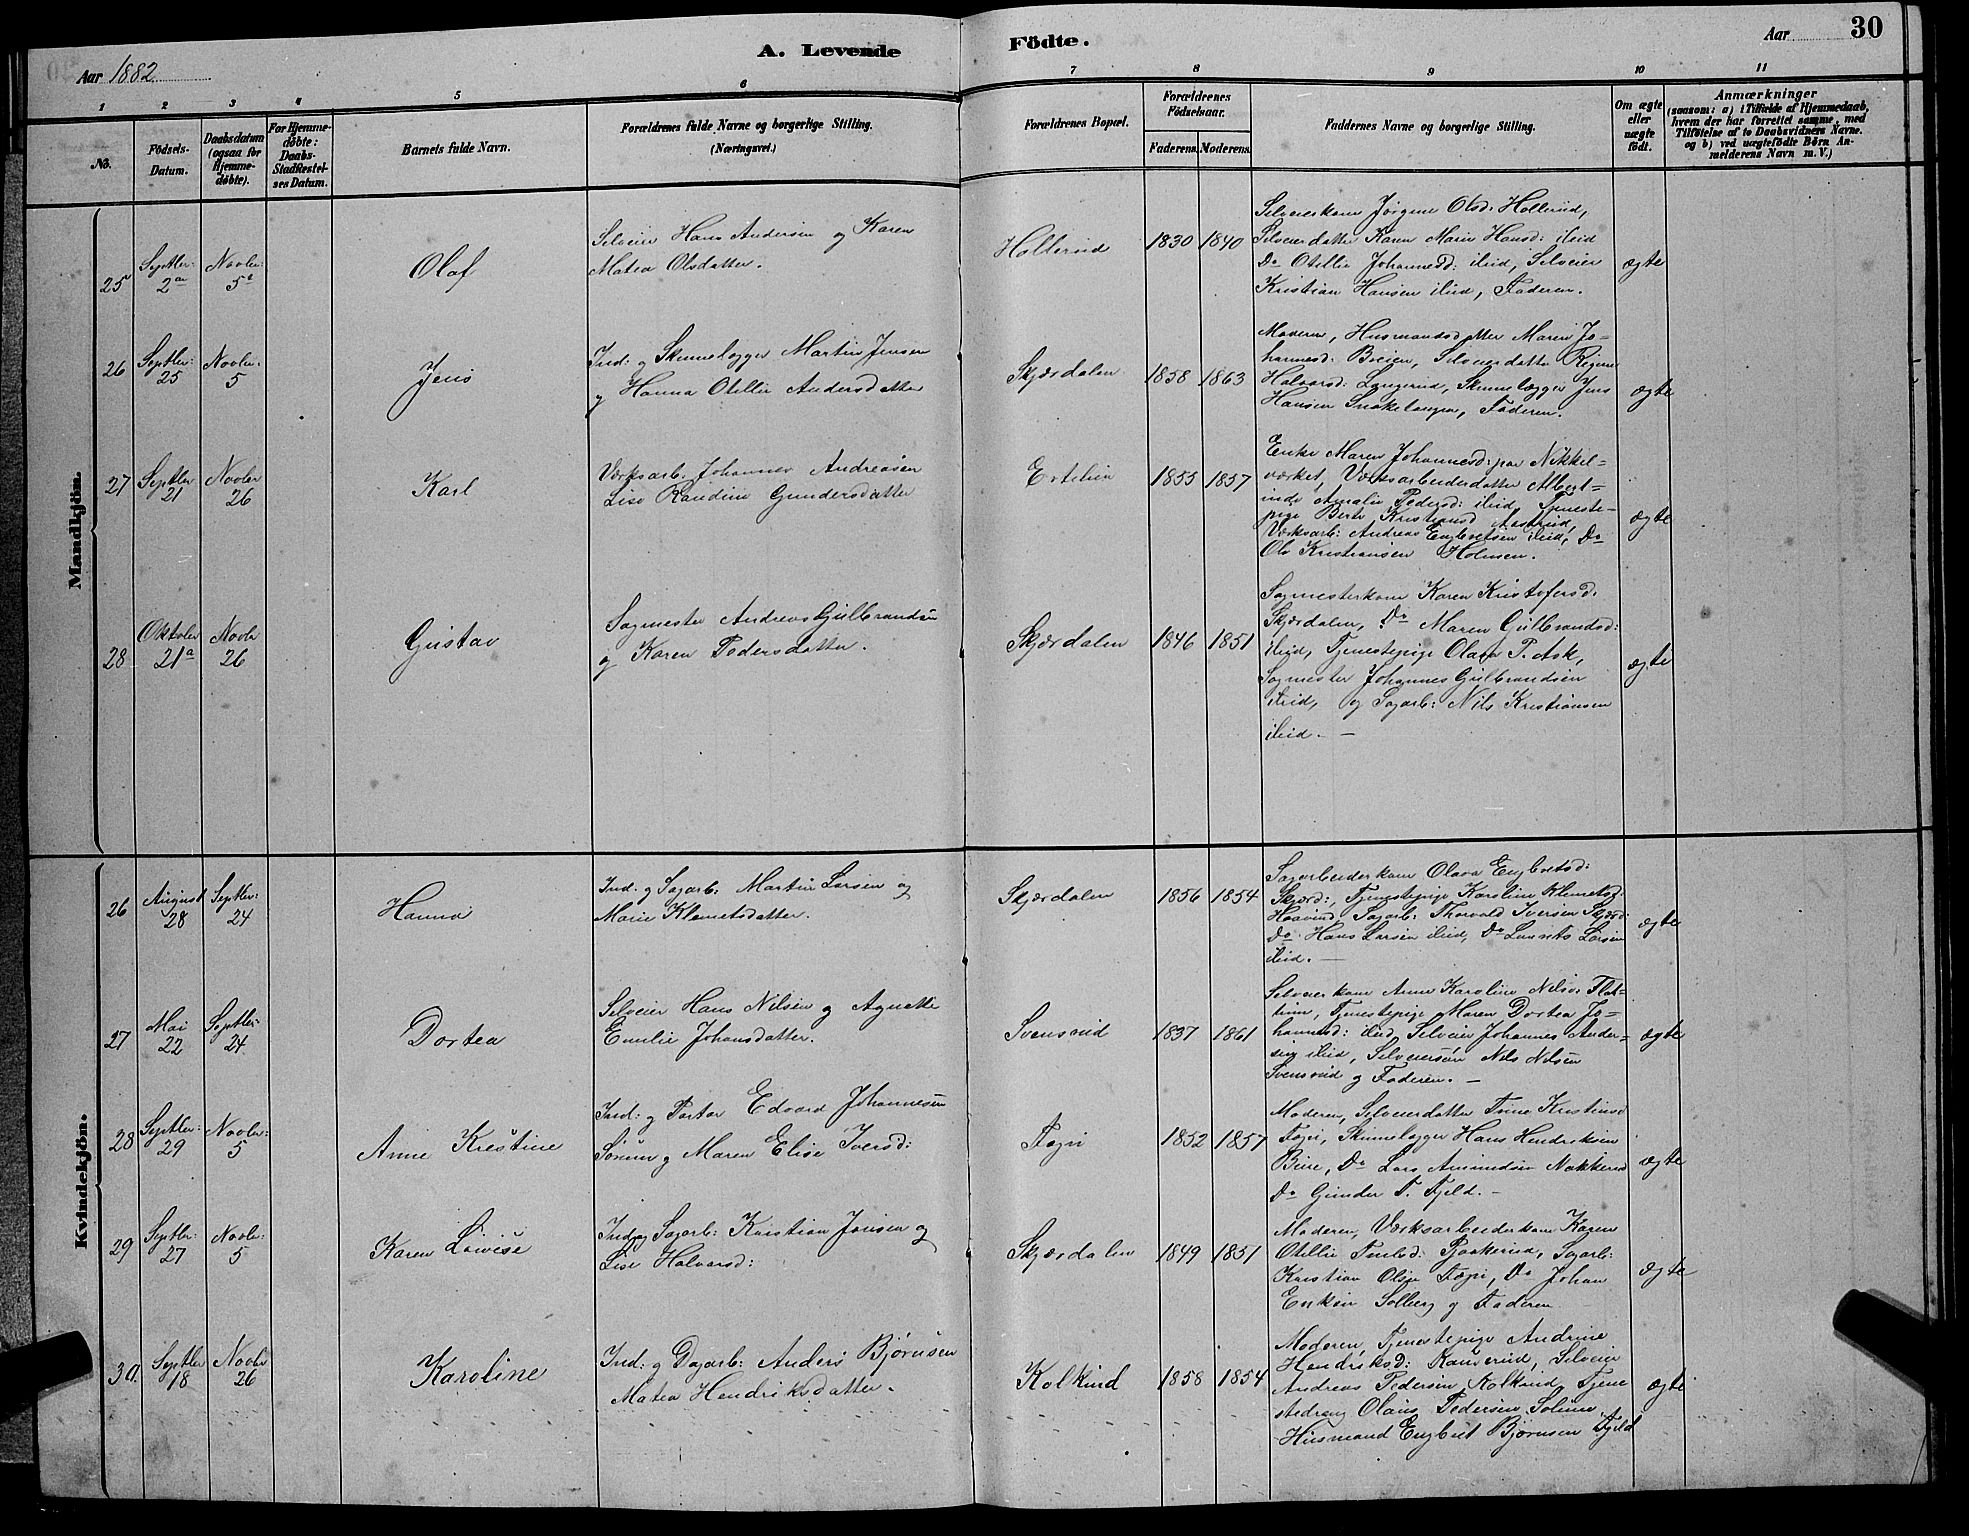 A. Levende
Fødte.
Aar
30
Aar 1882
1
2
3
4
5
6
7
8
9
10
11
No.
Fødsels-
Datum.
Daabsdatum
(ogsaa for
Hjemme-
døbte).
For Hjemme-
døbte:
Daabs-
Stadfæstel-
ses Datum.
Barnets fulde Navn.
Forældrenes fulde Navne og borgerlige Stilling.
(Næringsvei.)
Forældrenes Bopæl.
Forældrenes
Fødselsaar.
Faderens.
Moderens.
Faddernes Navne og borgerlige Stilling.
Om ægte
eller
uægte
født.
Anmærkninger
(saasom: a) i Tilfælde af Hjemmedaab,
hvem der har forrettet samme, med
Tilføielse af to Daabsvidners Navne.
og b) ved uægtefødte Børn An-
melderens Navn m. V.)
Mandkjøn.
25
Septber:
2
Novber:
5
Olaf
Selveier Hans Andersen og Karen
Matea Olsdatter.
Hollerud
1830
1840
Selveierkone Jørgine Olsd: Hollerud,
Selveierdatter Karen Marie Hansd: ibid
Do Otillie Johannesd: ibid, Selveier
Kristian Hansen ibid, Faderen.
ægte
26
Septber:
25
Novber:
5
Jens
Ind: og Skinnelægger Martin Jensen
og Hanna Otillie Andersdatter
Skjærdalen
1858
1863
Moderen, Husmandsdatter Maren Jo-
hannesd: Breien, Selveierdatter Regine
Halvorsd: Langerud, Skinnelægger Jens
Hansen Snokelangen, Faderen.
ægte
27
Septber
21
Novber
26
Karl
Værksarb. Johannes Andreasen
Lise Randine Gundersdatter
Ertelien
1855
1857
Enke Maren Johannesd: paa Nikkel-
værket, Værksarbeiderdatter Albert-
ine Amalie Pedersd: ibid, Tjeneste-
pige Berte Kristiansd Aastrud,
Værksarb: Andreas Engbretsen ibid, Do
Ole Kristiansen Holmen.
ægte
28
Oktober
21
Novbr
26
Gustav
Sagmester Andreas Gulbrandsen
og Karen Pedersdatter.
Skjærdalen
1846
1851
Sagmesterkone Karen Kristofersd:
Skjærdalen, Do Maren Gulbrandsd:
ibid, Tjenestepige Olava P. Ask,
Sagmester Johannes Gulbrandsen
ibid, og Sagarb: Nils Kristiansen
ibid. —
ægte
Kvindekjøn.
26
August
28
Septber:
24
Hanna
Ind: og Sagarb: Martin Larsen og
Marie Klemetsdatter.
Skjærdalen
1856
1854
Sagarbeiderkone Olava Engbretsd:
Skjærd:, Tjenestepige Karoline Klemetsd:
Haavind, Sagarb: Thorvald Iversen Skjærd:
Do Hans Larsen ibid, Do Laurits Larsen
ibid. —
ægte
27
Mai
22
Septber:
24
Dortea
Selveier Hans Nilsen og Agnette
Emilie Johansdatter.
Svensrud
1837
1861
Selveierkone Anne Karoline Nilsd: Flat-
, Tjenestepige Maren Dortea Jo-
hannesd: ibid, Selveier Johannes Ander-
sen ibid, Selveiersøn Nils Nilsen
Svensrud og Faderen. —
ægte
28
Septber:
29
Novber:
5
Anne Kristine
Ind: og Edvard Johannesen
og Maren Elise Iversd:
Fagri
1852
1857
Moderen, Selveierdatter Kristinsd
Fagri, Skinnelægger Hans Hendriksen
, Do Lars Amundsen Nakkerud
Do Gunder T. Fjeld. —
ægte
29
Septber:
27
Novber:
5
Karen Lovise
Ind: og Sagarb: Kristian Jonsen og
Lise Halvorsd:
Skjærdalen
1849
1851
Moderen, Værksarbeiderkone Karen
Otillie Sagarb:
Kristian Olsen Fagri, Do Johan
Eriksen Solberg og Faderen
ægte
30
Septber
18
Novbr
26
Karoline
Ind: og Dagarb: Anders Bjørnsen
Matea Hendriksdatter.
Kolkind
1858
1854
Moderen, Tjenestepige Andrine
Hendriksd: , Selveier
Andreas Pedersen Kolkind, Tjene-
stedreng Olaus Pedersen
Husmand Engbret Bjørnsen Fjeld
ægte